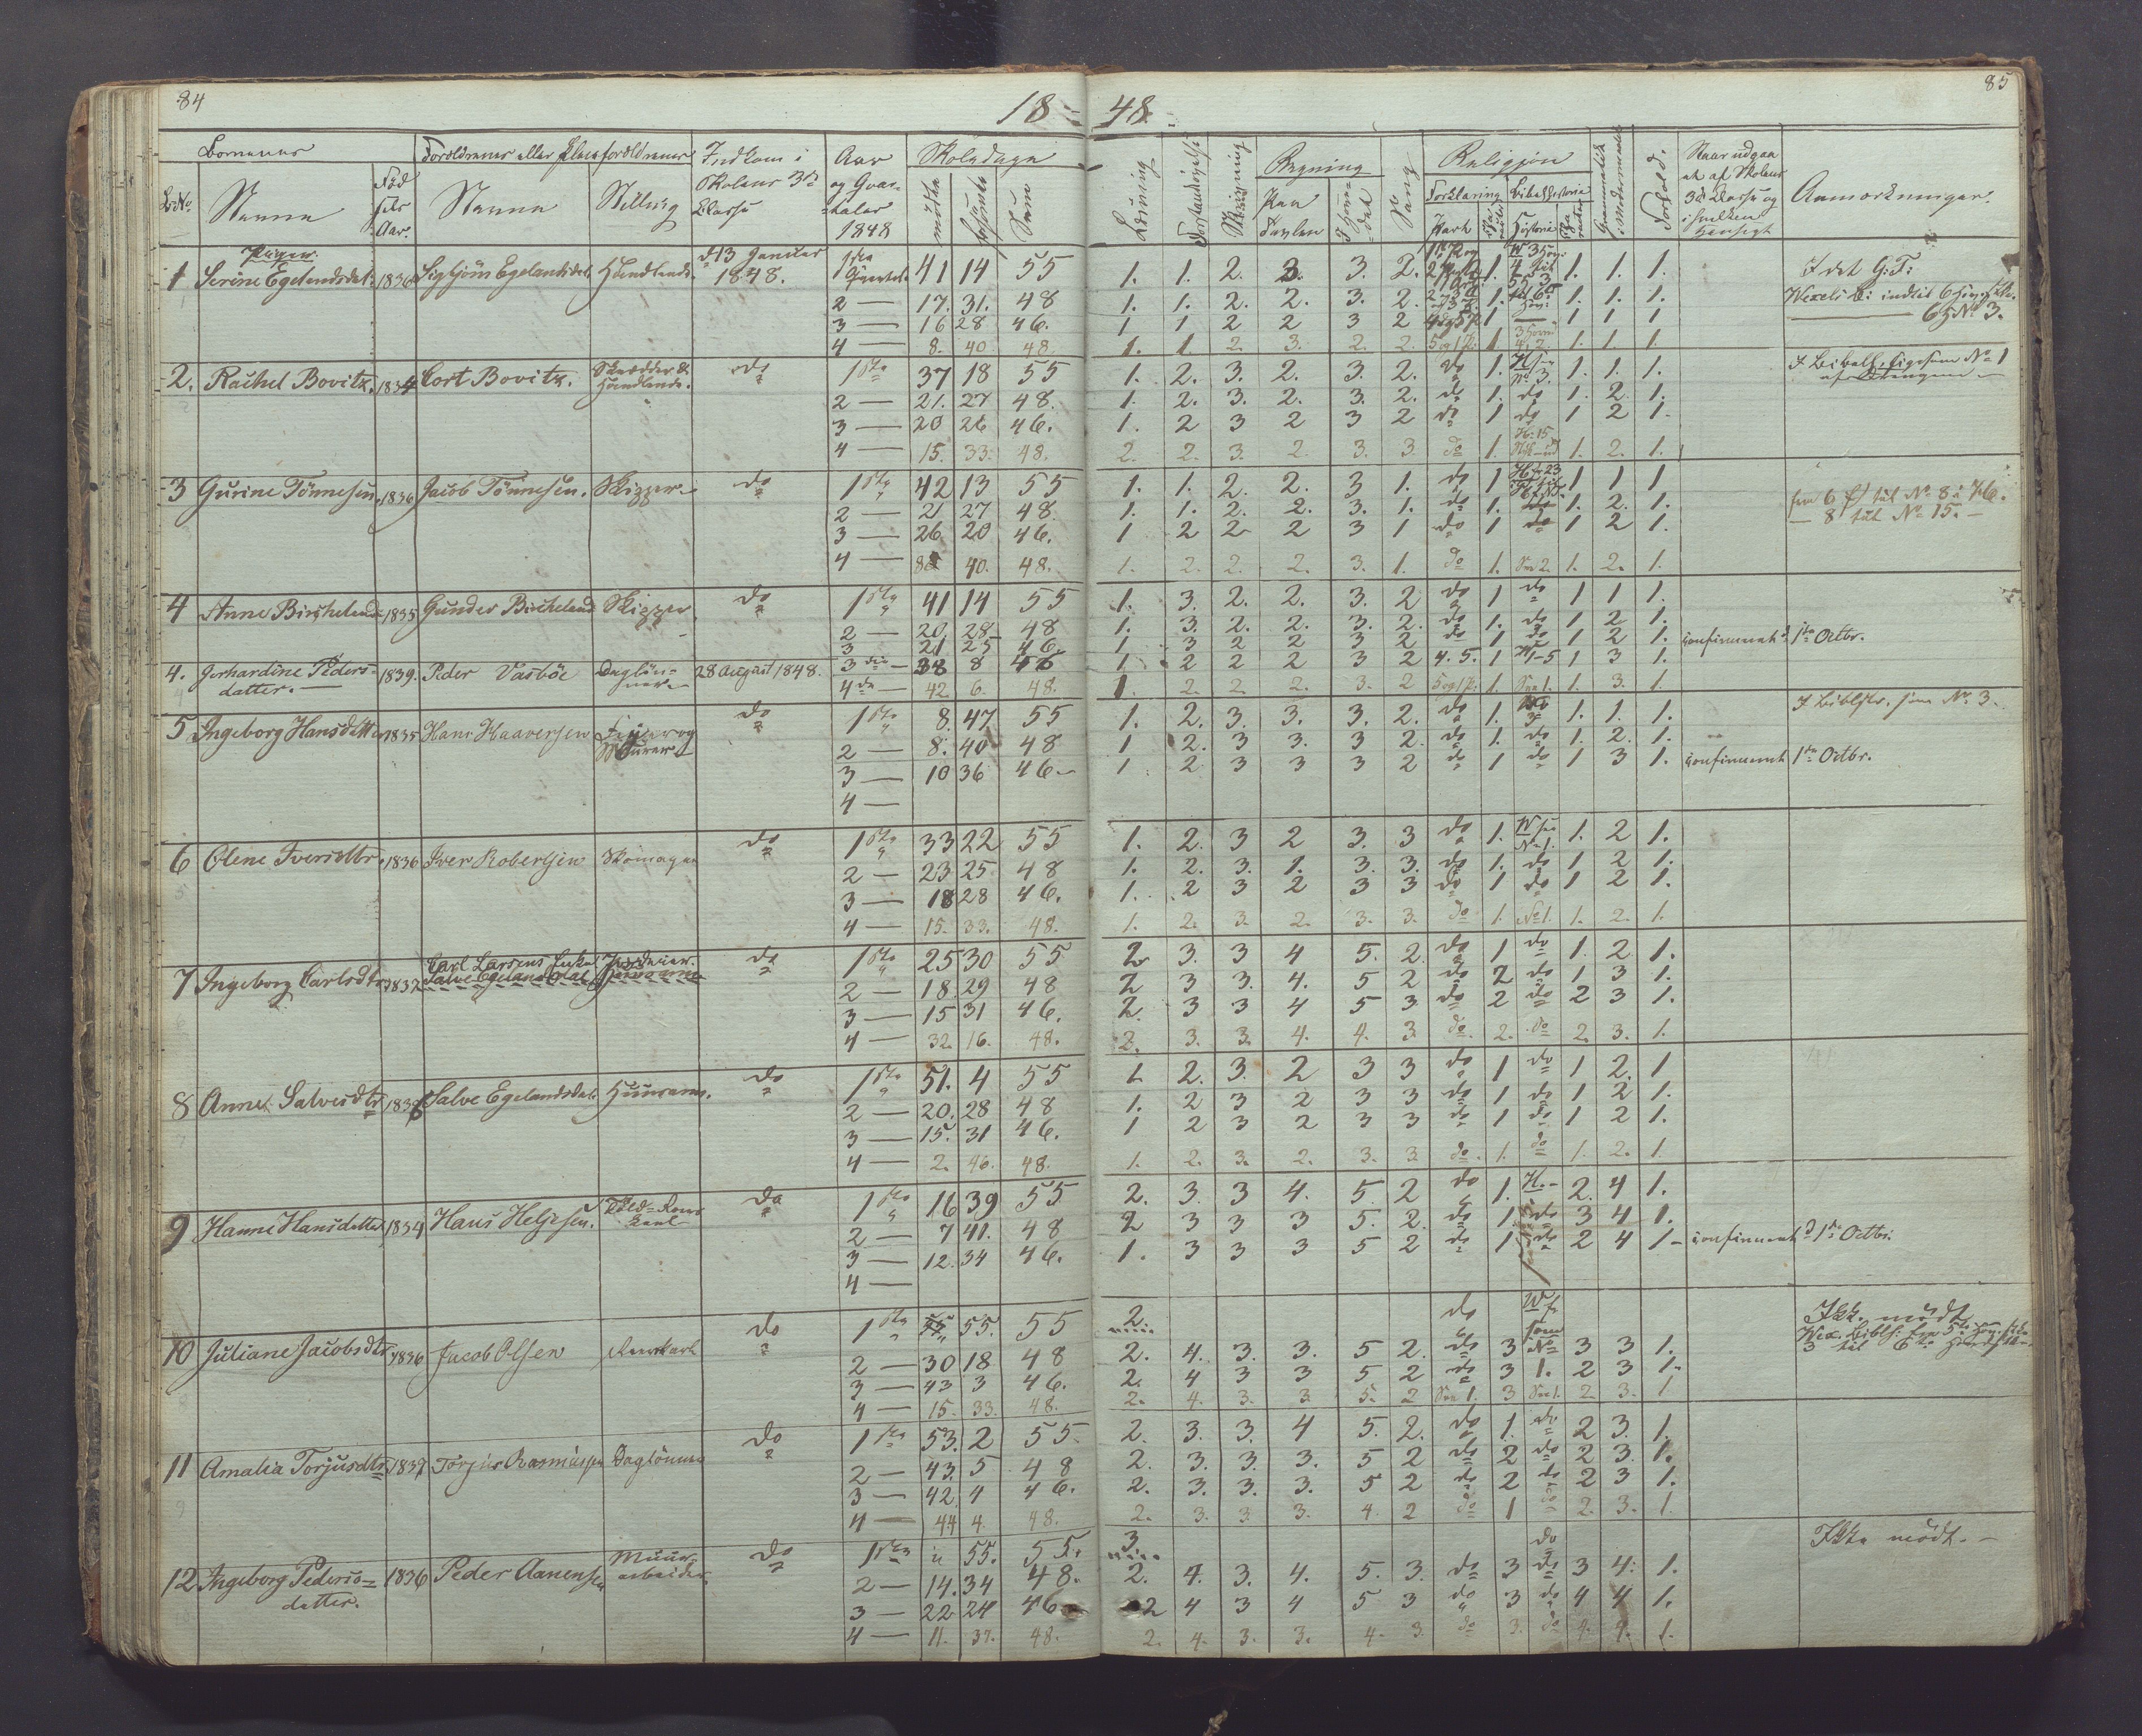 84
18 = 48.
85
Børnenes
Forældrenes eller Pleieforældrenes
Indkom i Skolens 3die Classe
Aar og Qvartaler 1848
Skoledage
Læsning
Skrivning
Regning
Paa Tavlen
Sang
Religion
Forklaring
Bibelhistorie
Forhold.
Anmærkninger.
No
Navne
Fødselsaar.
Navne
Stilling
mødte
forsømte
Sum
Piger.
1 Serine Egelandsdal. 1836 Sigbjörn Egelandsdal Handlende. d. 13 Januar 1848. 1ste Qvartal 41 14 55 1. 1. 2. 3. 3. 2. 1. 1. 1. 1. I det G: T:
2 — 17. 31. 48 1. 1. 2. 2. 3. 2. 1. 1. 1. 1.
3 — 16 28 46. 1 1 2 2 3 2 1 1 1 1
4 — 8. 40 48. 1. 1. 2. 3. 2. 2. 5 og 1 P. 1. 1. 1. 1.
2. Rachel Bovitz. 1834 Cort Bovitz. Skrædder & Handlende. do 1ste 37 18 55 1. 2. 3. 2. 3. 2. do 1. 1. 1. 1.
2 — 21. 27 48. 1. 2. 3. 2. 3. 2. do 1. do 1. 2. 1.
3 — 20 26 46. 1. 2 3 2 3 2 do 1 do 1 2 1.
4 — 15. 33. 48. 2. 2. 3. 2. 3. 3. do 1. 1. 2. 1.
3 Gurine Tönnesen. 1836 Jacob Tönnesen. Skipper do 1ste 42 13 55 1. 1. 2. 2. 3 1. do 1 1 1 1
2 — 21 27 48. 1. 1. 2. 2. 3. 1. do 1. do 1. 2. 1. fra 6 til No 8 i
3 — 26 20 46. 1 2 2 2 3 1 do 1 do 1 2 1. — 8 til No 15. —
4 — 8 40. 48. 1. 2. 2. 2. 3. 1. do 1. 1. 2. 1.
4 Anne Bircheland 1835 Gunder Bircheland Skipper do 1ste 41 14 55 1. 3. 2. 2. 3. 2 do 1 do 1 1 1.
2 — 20. 28. 48 1. 3. 2. 2. 3. 2. do 1. do 1 2 1.
3 21 25 46. 1 3 2 2 3 2 do 1 do 1 2 1. confirmeret d. 1ste Octbr.
4. Gerhardine Pedersdatter. 1839. Peder Vasböe Daglönner 28 August 1848. 3die — 38 8 46 1 2 2 2 3 2 4. 5. 1 1-5 1 3 1.
4de — 42. 6. 48. 1. 2. 2. 2. 3. 2 5 og 1 P. 1. 1. 3. 1.
5 Ingeborg Hansdatter 1835 Hans Haaversen Murer do 1ste 8. 47 55 1. 2. 3. 3. 3. 2. do 1. 1. 1. 1. I Biblhstr. som No 3.
2 — 8. 40 48 1 2. 3 3. 3 2. do 1. do 1. 2. 1.
3 — 10 36 46 1 2 3 3 3 2 do 1 do 1 3 1. confirmeret 1ste Octbr.
4 —
6 Oline Iversdtr. 1836 Iver Robertsen Skomager do 1ste 33 22 55 1. 2. 3 2 3. 3 do 1. 1. 2 1.
2 — 23 25 48 1. 2. 3. 1. 3. 3. do 1. do 1 2 1.
3 — 18 28 46. 1. 2 3 2 3 3 do 1 do 1 2 1.
4 — 15. 33. 48. 1. 2. 3. 2. 3. 3. do 1. No 1. 1. 2. 1.
7 Ingeborg Carlsdtr. 1837 Carl Larsens Enke Salve Egelandsdal Jordeier. do 1ste 25 30 55 2 3. 3 4 5. 2. do 1 do 1. 2 1.
2 — 18. 29 48 2 3 3. 4. 5 2 do 2 do 1 3 1.
3 — 15 31 46. 2. 3 3 4 5 3 do 2 do 2 3 1.
4 — 32. 16. 48. 2. 3. 3. 4. 4. 3. do 2. do 2. 3. 1.
8 Anne Salvesdtr. Salve Egelandsdal Huusmand. do 1ste 51. 4 55 1 2. 3. 2 3 3 do 1 do 1 2. 1
2 — 20. 28 48 1. 2 3 2 3 3 do 1 do 1 2 1.
3 — 15. 31 46. 1 2 3 2 3 3 do 1 do 1 2 1.
4 — 2. 46. 48. 1. 2. 3. 2. 3. 3. do 1. do 1. 2. 1.
9 Hanne Hansdatter 1834 Hans Heljesen. do 1ste 16 39 55 2. 3. 3 4. 5. 2 do 1. 2. 4 1.
2 — 7 41. 48 2 3 3 3 5. 2. do 1. do 3 4 1.
3 — 12. 34 46. 1. 3 3 3 5 2 do 1 do 2 4 1 confirmeret d. 1ste Octbr.
4 —
10 Juliane Jacobsdtr. 1836 Jacob Olsen do 1ste 55. 55 2. do Ikke mödt
2 — 30 18 48 2. 4. 3. 3. 5 2. do 3 No 3 3 1.
3 — 43 3 46. 2. 4 3 3 5 2 do 3 1. 2 3 1.
4 — 15. 33. 48. 2. 4. 3. 3. 5. 2 3 2. 3. 1
11 Amalia Torjusdtr. 1837 Torjus Rasmussen Daglönner do 1ste 53. 2 55. 2. 3. 3. 4 5. 2. do 1. do 2 3. 1.
2 — 43. 5 48 2. 3. 3. 3. 5 2 do 2 do 2 3. 1.
3 — 42. 4 46. 2. 3. 3. 3. 5 2 do 2 do 2 3 1.
4 — 44 4. 48. 2. 3. 3. 3. 4. 2 do 1 do 2. 3. 1.
12 Ingeborg Pedersdatter. 1836 Peder Aanensen Muurarbeider. do 1ste " 55. 55. 3. do Ikke mödt. —
2 — 14. 34 48. 2. 4. 3. 4. 5. 3. do 3 do 3 4. 1.
3 — 22 24 46 2 4 3 4 5 3 do 3 do 4 4 1.
4 — 11. 37. 48. 2. 4. 3. 3. 4. 3. do 3. do 4. 4. 1.